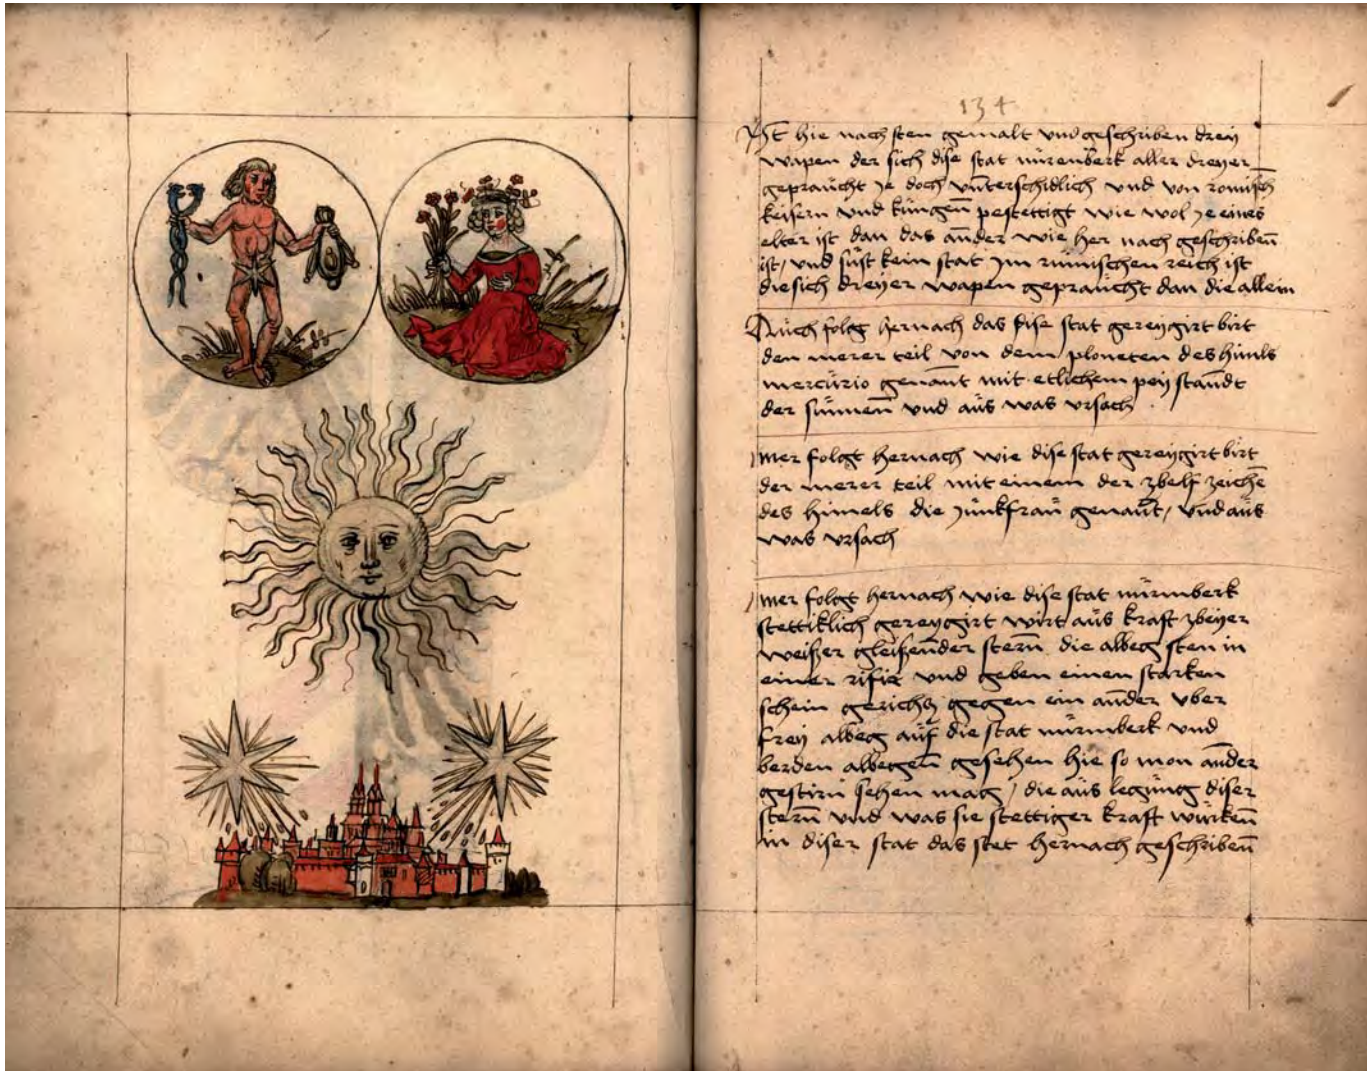 134
Jst hie nach sten gemalt und geschriben dreÿ
wapen der sich dise stat nürenberk aller dreyer
gepraücht je doch ünterschidlich und von romisch
keisern und küngen̄ pestettigt wie wol je eines
elter ist dan das an̄der wie her nach geschriben̄
ist / und süst kein stat jm römischen reich ist
die sich dreyer wapen gepraücht dan die allein
Aüch folgt hernach das dise stat gereygirt birt
den merer teil von dem ploneten des himls
mercürio genan̄t mit etlichem peÿ stan̄dt
der sünnen̄ und aüs was ursach
mer folgt hernach wie dise stat gereygirt birt
der merer teil mit einem der zbelf zeichē
des himels die jünkfraü genan̄t / und aüs
was ursach
mer folgt hernach wie dise stat nürmberk
stettiklich gereygirt wirt aüs kraft zbeyer
weißer gleißen̄der stern̄ die albeg sten in
einer rifir und geben einen starken
schein gerichtz gegen ein an̄der uber
freÿ albeg aüf die stat nürmberk und
berden albegen̄ gesehen hie so mon an̄der
gestirn sehen mag / die aüs legüng diser
stern̄ und was sie stettiger kraft würken̄
in diser stat das stet hernach geschriben̄